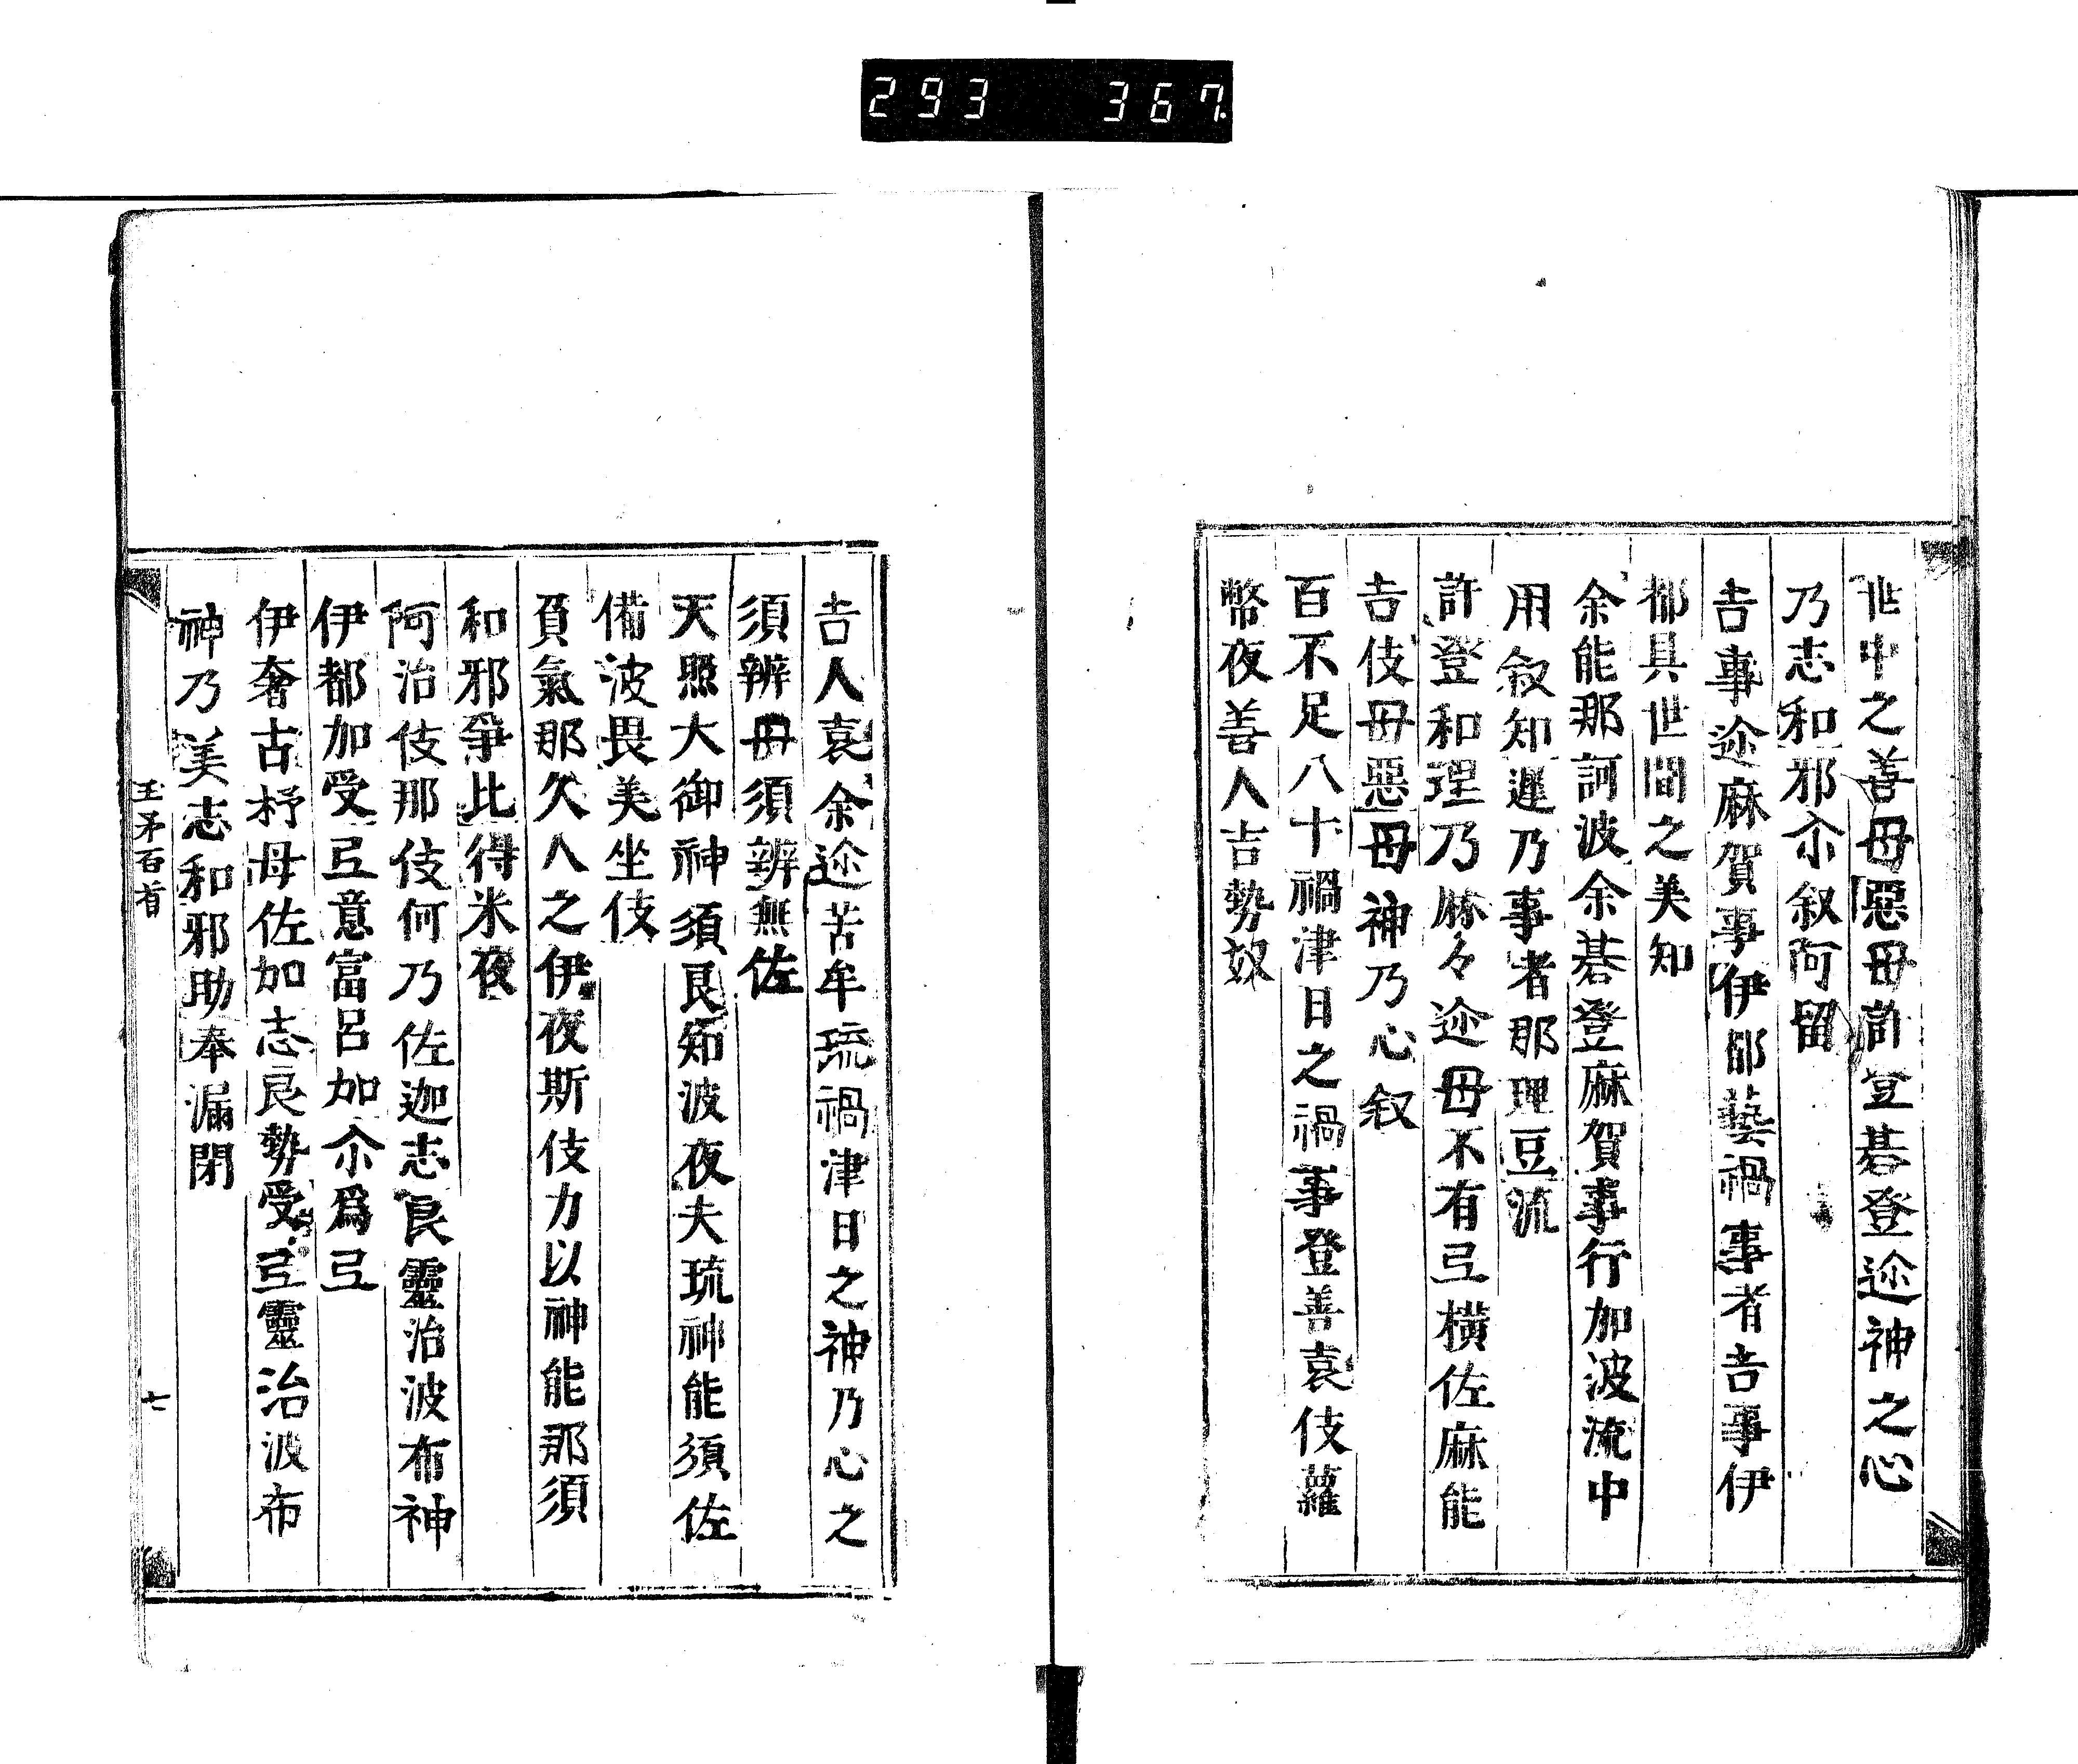 293 367
世中之善毋惡毋許登碁登迩神之心
乃志和邪尒叙阿留
吉事迩麻賀事伊都藝禍事者吉事伊
都具世間之美知
余能那訶波余碁登麻賀事行加波流中
用叙知遲乃事者那理豆流
許登和理乃麻々迩毋不有弖横佐麻能
吉伎毋惡毋神乃心叙
百不足八十禍津日之禍事登善袁伎蘿
幣夜善人吉勢奴
吉人袁余迩苦牟琉禍津日之神乃心之
須辨毋須辨無佐
天照大御神須良知波夜夫琉神能須佐
備波畏美坐伎
負氣那久人之伊夜斯伎力以神能那須
和邪爭比得米夜
阿治伎那伎何乃佐迦志良靈治波布神
伊都加受弖意富呂加尒爲弖
伊奢古杼毋佐加志良勢受弖靈治波布
神乃美志和邪助奉漏閇
玉矛百首
七